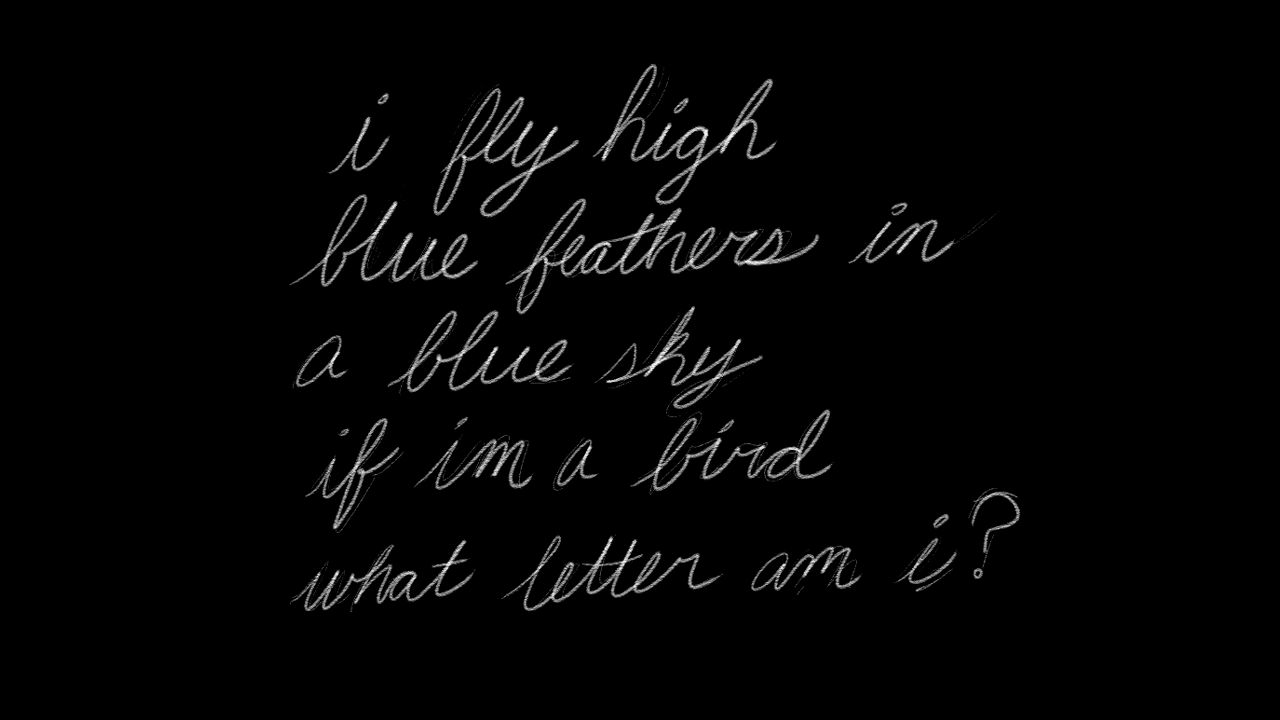 i fly high
blue feathers in
a blue sky
if im a bird
what letter am i?